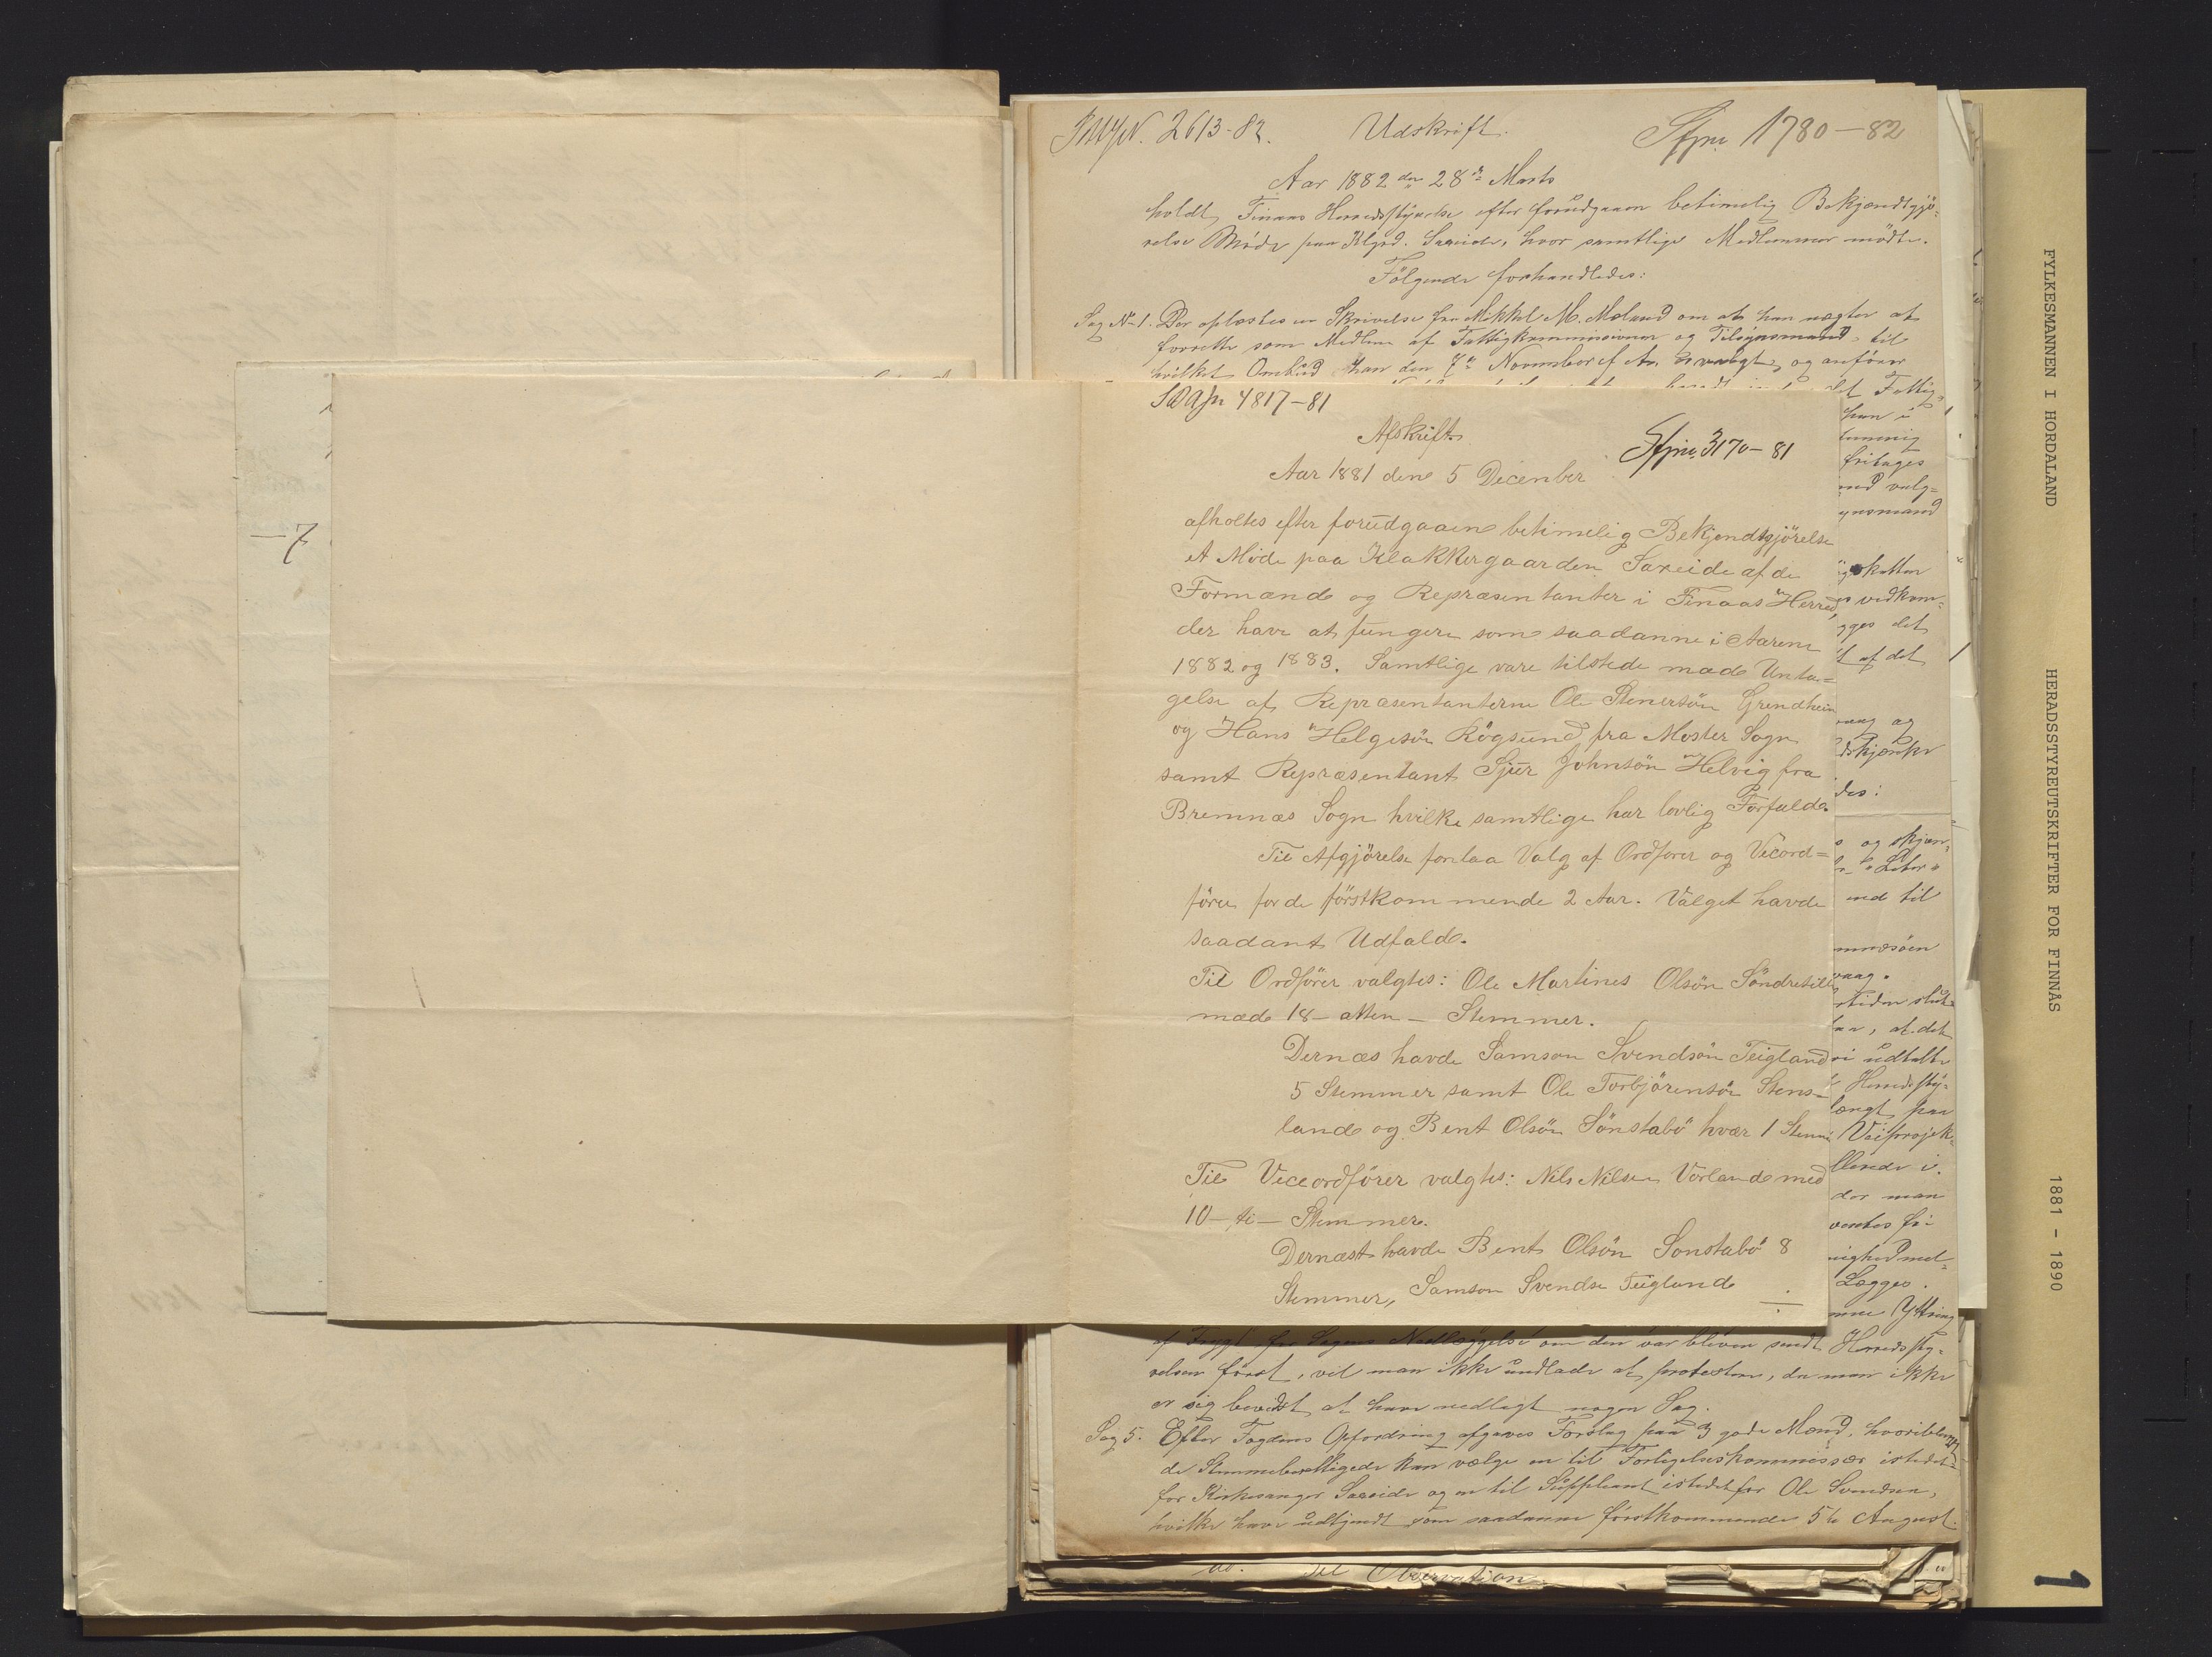 2613-82. Udskrift. Sfjnr 1780-82
Aar 1882 den 28de Marts
holdt Finaas Herredsstyrelse efter forudgaaen betimelig Bekjendtgjö-
relse Möde paa Klgrd. Sareide, hvor samtlige Medlemmer mödte.
Fölgende forhandledes:
Sag No 1. Der oplæstes en Skrivelse fra Mikkel M. Meland om at han nægter at
forrette som Medlem af Fattigkommissionen og Tilsynsmand, til
hvilket Ombud han den 7de November f. Ar. er valgt, og anförer
det Fattig-
han i
fritages
valg-
ynsmand
skatten
vedkom-
gges det
af det
og
des:
og skjön-
ned til
vaag.
at det
udtalte
Herredssty-
længt paa
Veiprojek-
llerede i
der man
ventes fö-
Lægges.
mne Yttring
SOAJn 4817-81
Afskrift.
Sfjnr. 3170-81
Aar 1881 den 5 December
afholtes efter forudgaaen betimelig Bekjendtgjörelse
et Möde paa Klakkergaarden Sareide af de
Formænd og Repræsentanter i Finaas Herred,
der have at fungere som saadanne i Aarene
1882 og 1883. Samtlige vare tilstede med Unta-
gelse af Repræsentanterne Ole Stenersön Grendheim
og Hans Helgesön Rögsund fra Moster Sogn
samt Repræsentant Sjur Johnsön Helvig fra
Bremnæs Sogn hvilke samtlige har lovlig Forfald.
Til Afgjörelse forelaa Valg af Ordförer og Viceord-
förer for de förstkommende 2 Aar. Valget havde
saadant Udfald.
Til Ordförer valgtes: Ole Martines Olsön Söndresili
med 18 - atten - Stemmer.
Dernæs havde Samson Svendsön Teigland
5 Stemmer samt Ole Torbjörensön Stens-
land og Bent Olsön Sönstabö hver 1 Stemme
Til Viceordförer valgtes: Nils Nilsen Vorland med
10 - ti - Stemmer.
Dernæst havde Bent Olsön Sonstabö 8
Stemmer, Samson Svendse Teigland
af Frygt for Sagens Nedlæggelse om den var bleven sendt Herredssty-
relsen först, vil man ikke undlade at protestere, da man ikke
er sig bevidst at have nedlagt nogen Sag.
Sag 5. Efter Fogdens Opfordring afgaves Forslag paa 3 gode Mænd, hvoriblandt
de Stemmeberettigede kan vælge en til Forligelseskommissær istedet-
for Kirkesanger Sareide og en til Suppleant istedetfor Ole Svendsen,
hvilke have udtjent som saadanne förstkommende 5te August.
do. Til Observation
FYLKESMANNEN I HORDALAND
HERADSSTYREUTSKRIFTER FOR FINNÅS
1881 - 1890
1